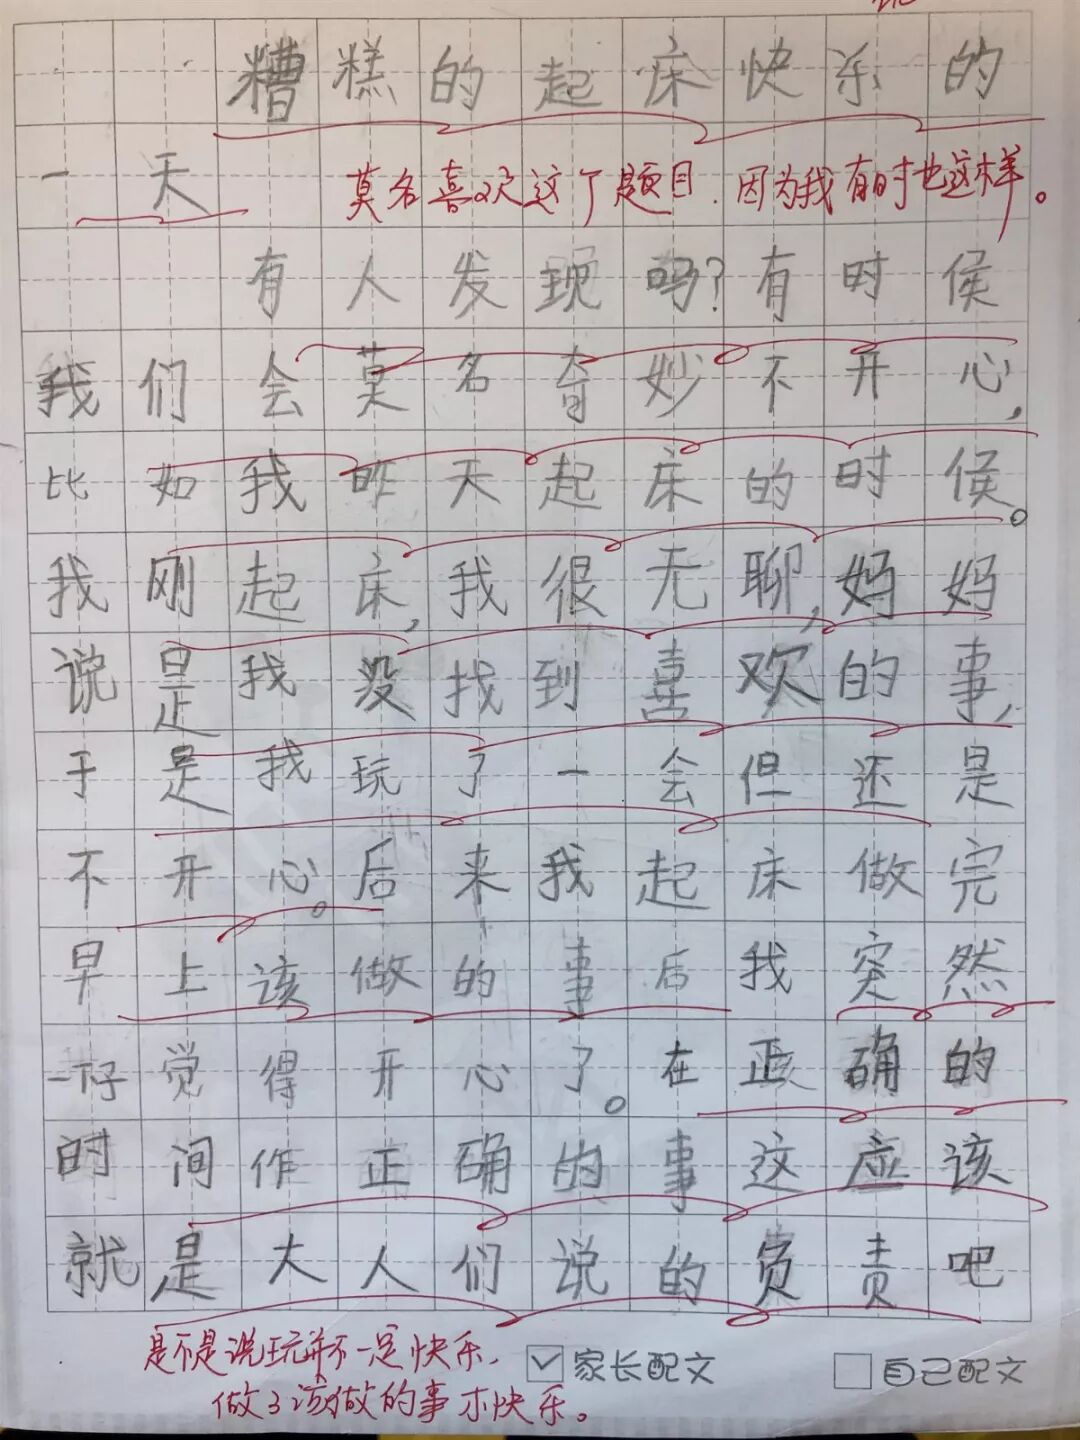 糟糕的起床快乐的
一天
莫名喜欢这了题目，因为我有时也这样。
有人发现吗？有时候
我们会莫名奇妙不开心，
比如我昨天起床的时候。
我刚起床，我很无聊，妈妈
说是我没找到喜欢的事，
于是我玩了一会但还是
不开心。后来我起床做完
早上该做的事后我突然
一下子觉得开心了。在正确的
时间作正确的事这应该
就是大人们说的负责吧
是不是说玩并不一定快乐，
做了该做的事才快乐。
家长配文
自己配文